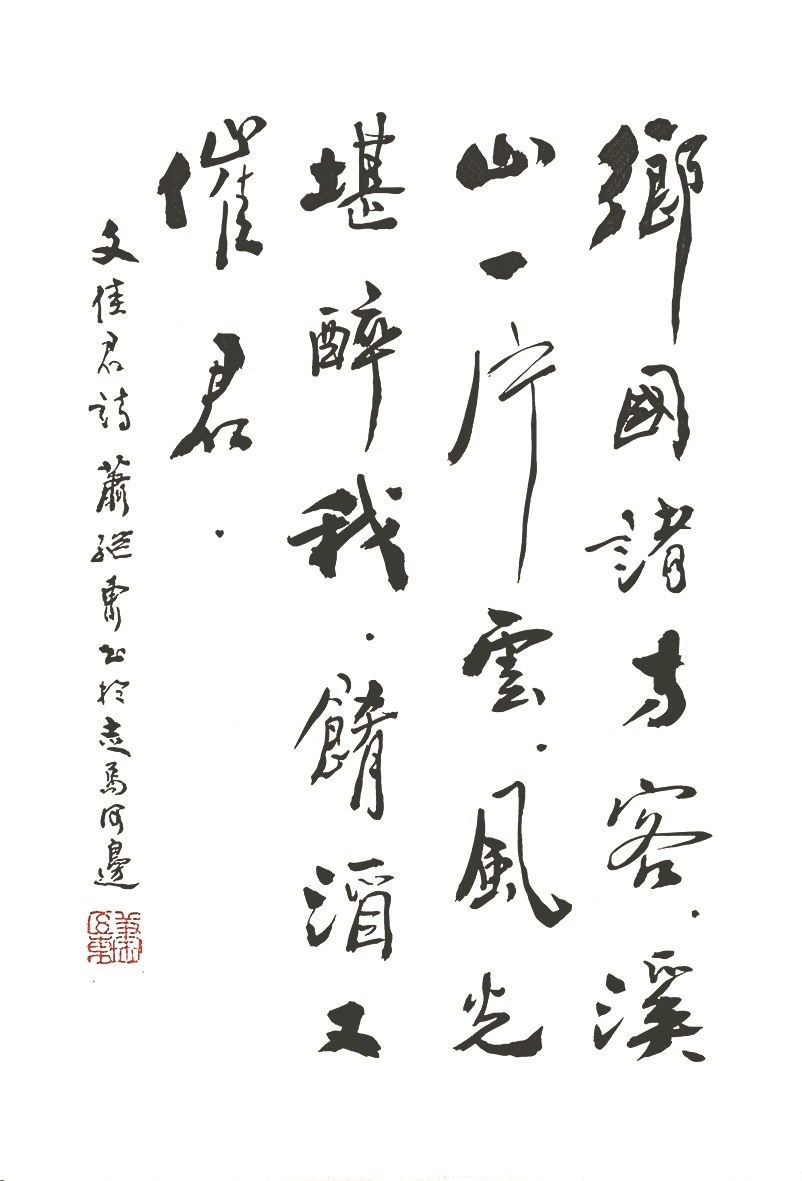 鄉國諸方客．溪
山一片雲．風光
堪醉我．餚酒又
催君．
文佳君詩 蕭 書於志馬河邊